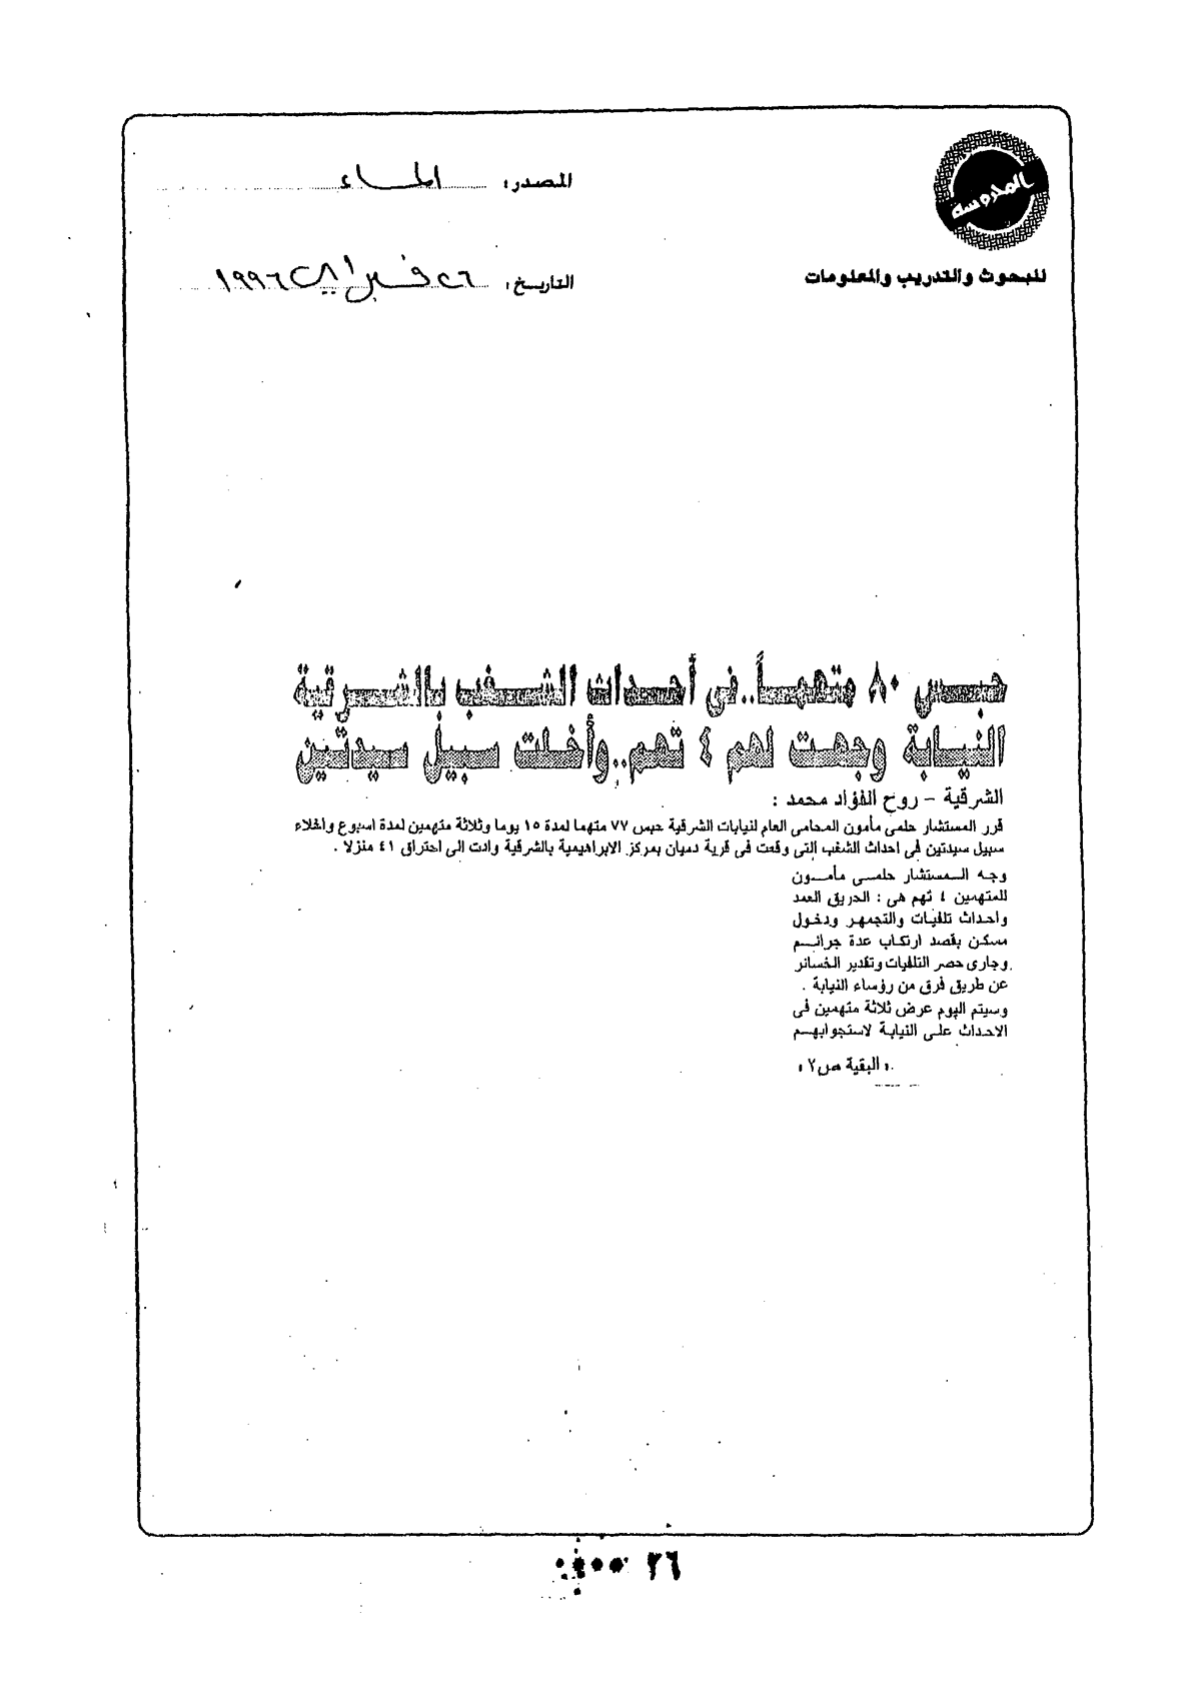 المحروسة
للبحوث والتدريب والمعلومات
المصدر: المساء
التاريخ: ٢٦ فبراير ١٩٩٦
حبس ٨٠ متهماً.. في أحداث الشغب بالشرقية
النيابة وجهت لهم ٤ تهم.. وأخلت سبيل سيدتين
الشرقية - روح الفؤاد محمد :
قرر المستشار حلمى مأمون المحامى العام لنيابات الشرقية حبس ٧٧ متهما لمدة ١٥ يوما وثلاثة متهمين لمدة اسبوع واخلاء
سبيل سيدتين فى احداث الشغب التى وقعت فى قرية دميان بمركز الابراهيمية بالشرقية وادت الى احتراق ٤١ منزلا .
وجه المستشار حلمى مأمون
للمتهمين ٤ تهم هى : الحريق العمد
واحداث تلفيات والتجمهر ودخول
مسكن بقصد ارتكاب عدة جرائم
وجارى حصر التلفيات وتقدير الخسائر
عن طريق فرق من رؤساء النيابة .
وسيتم اليوم عرض ثلاثة متهمين فى
الاحداث على النيابة لاستجوابهم
« البقية ص٢ »
٢٦